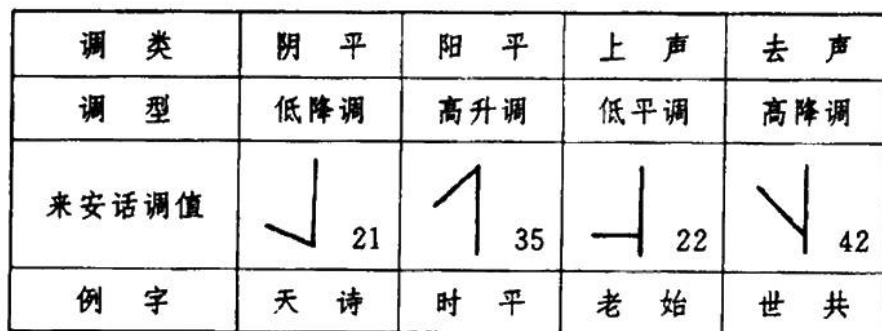 调类 阴平 阳平 上声 去声
调型 低降调 高升调 低平调 高降调
来安话调值 21 35 22 42
例字 天诗 时平 老始 世共